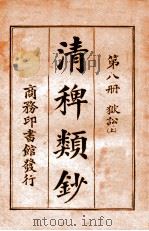 第八冊 獄訟(上)
清稗類鈔
商務印書館發行
www.mtoou.info